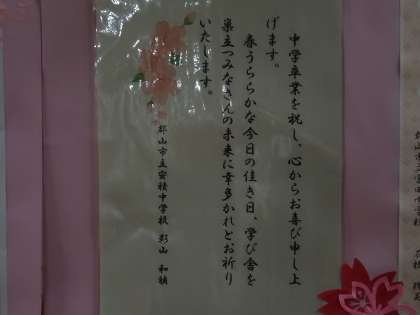 中学卒業を祝し、心からお喜び申し上
げます。
春うららかな今日の佳き日、学び舎を
巣立つみなさんの未来に幸多かれとお祈り
いたします。
郡山市立安積中学校 影山 和禎